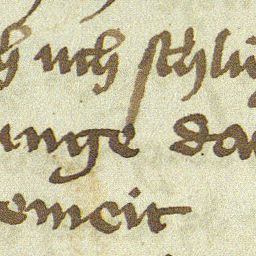 h uch schlu
unge da
emeit